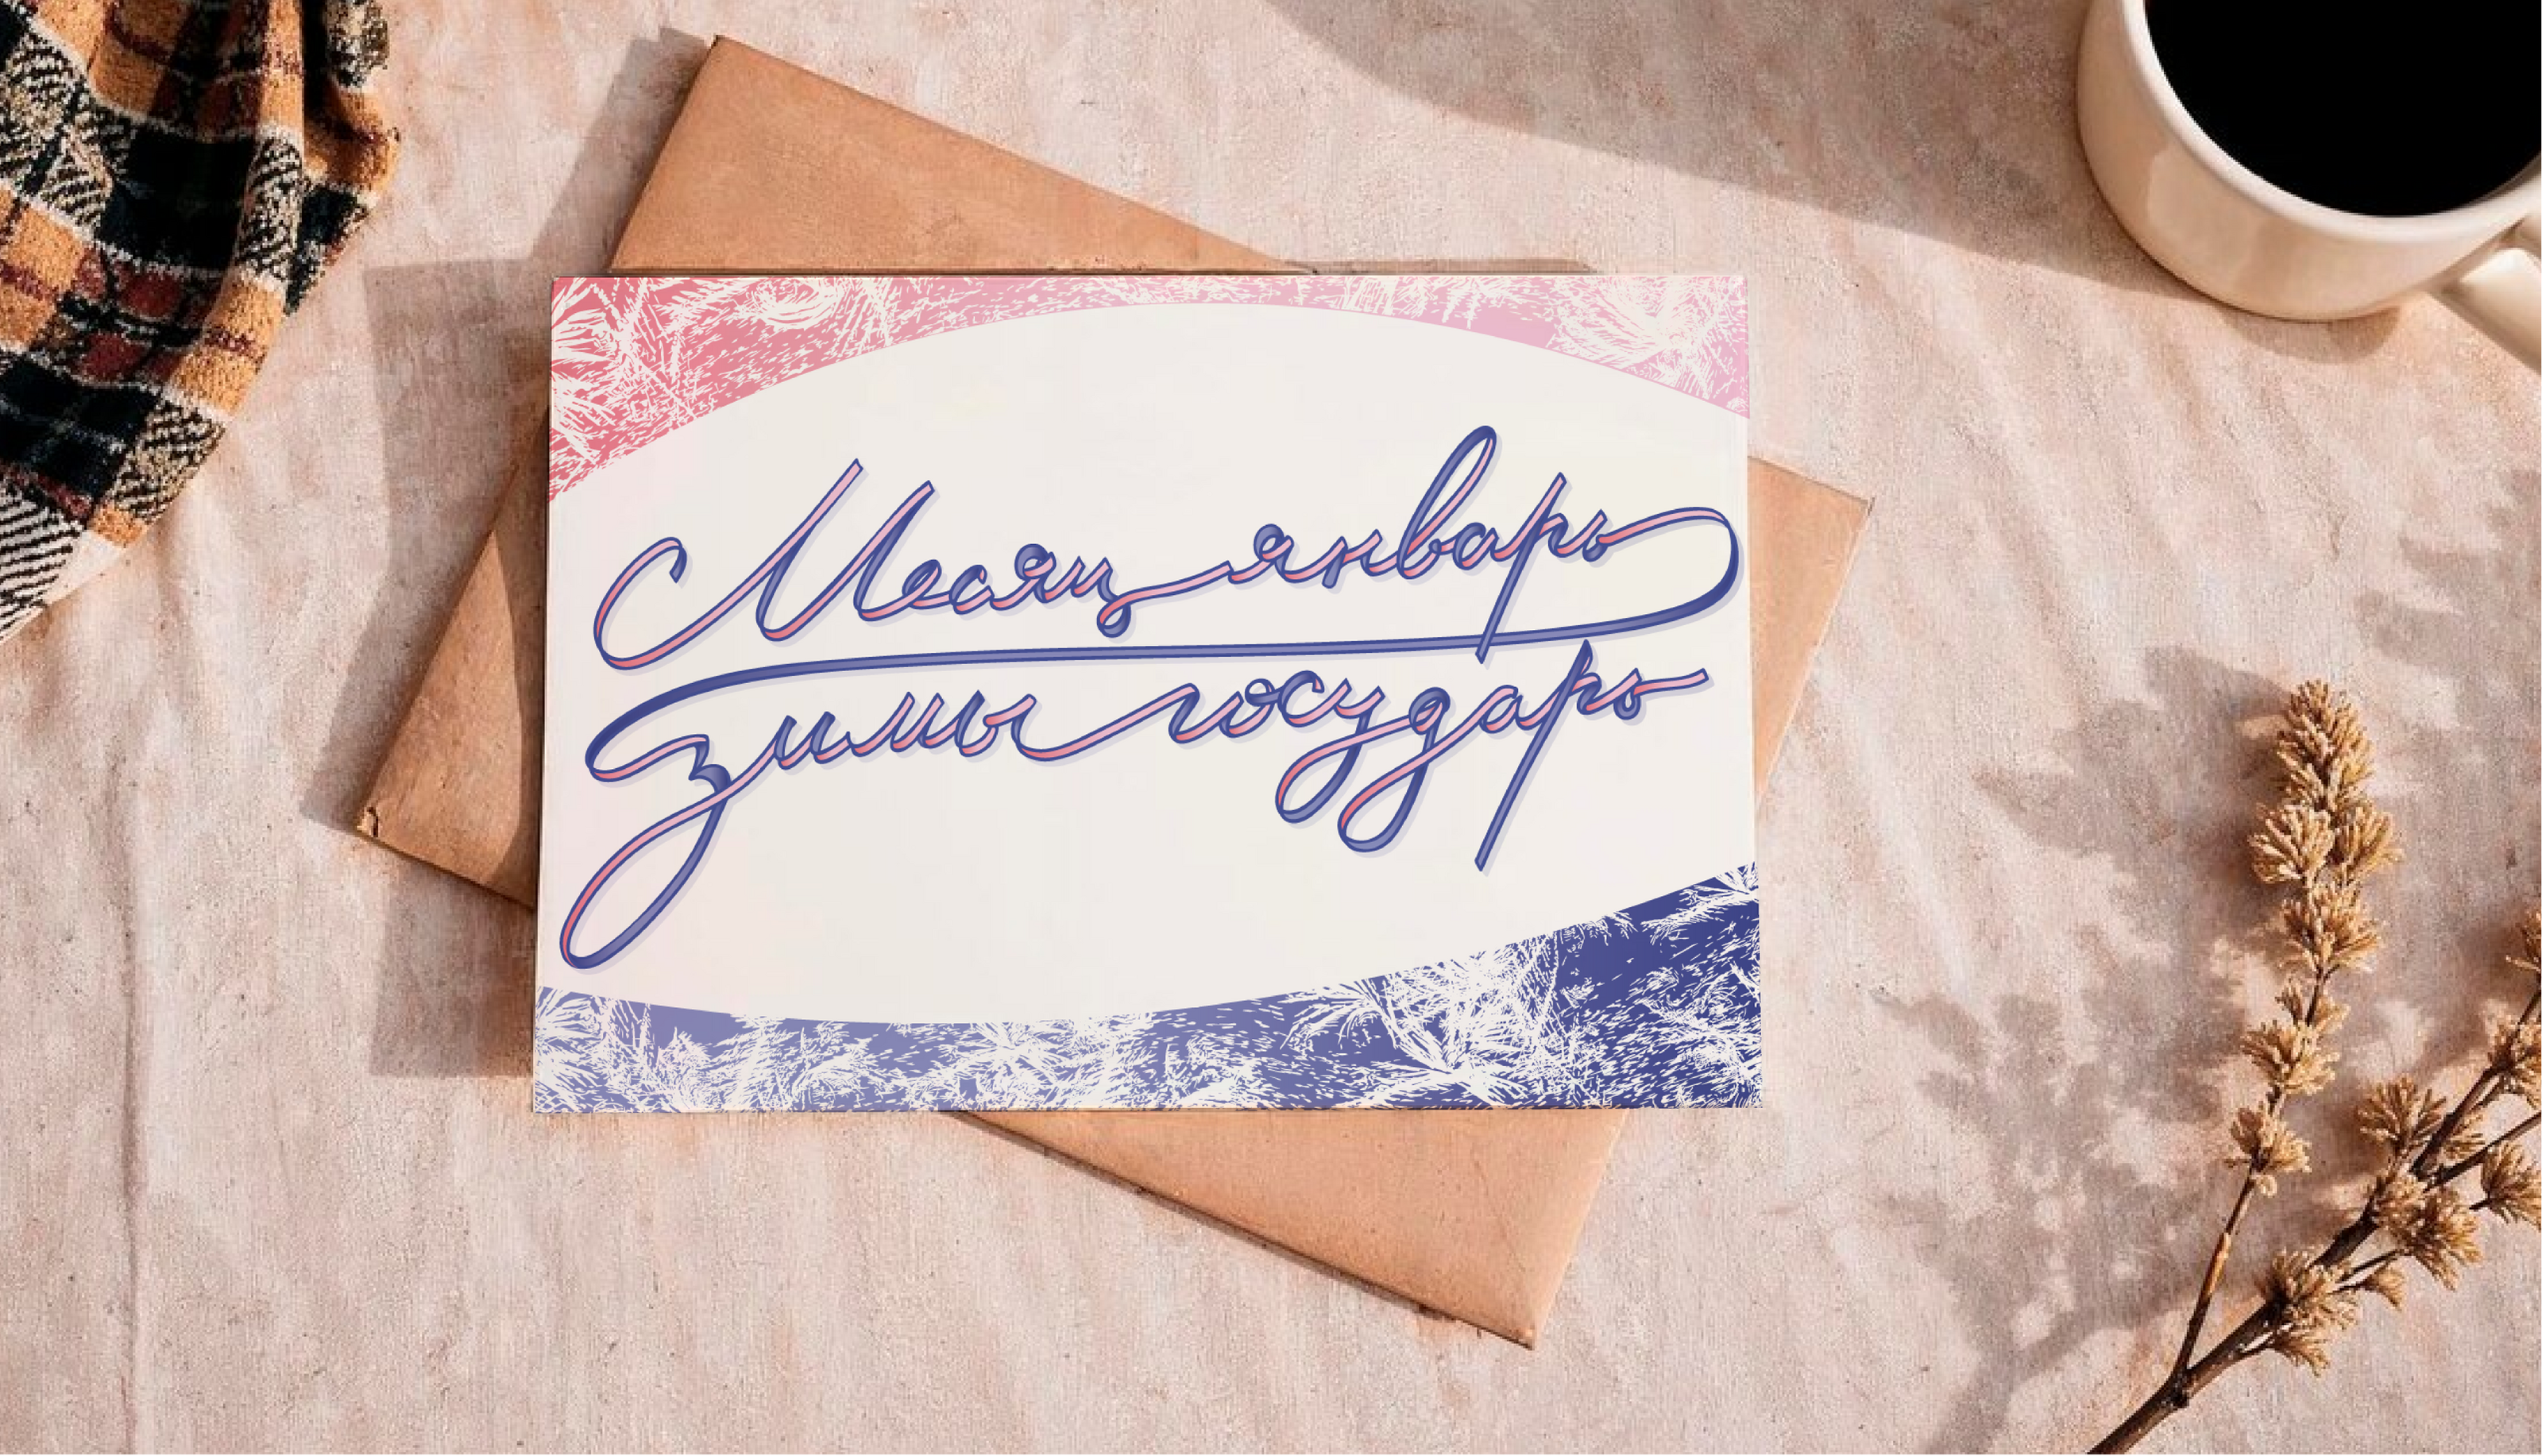 Месяц январь
зимы государь